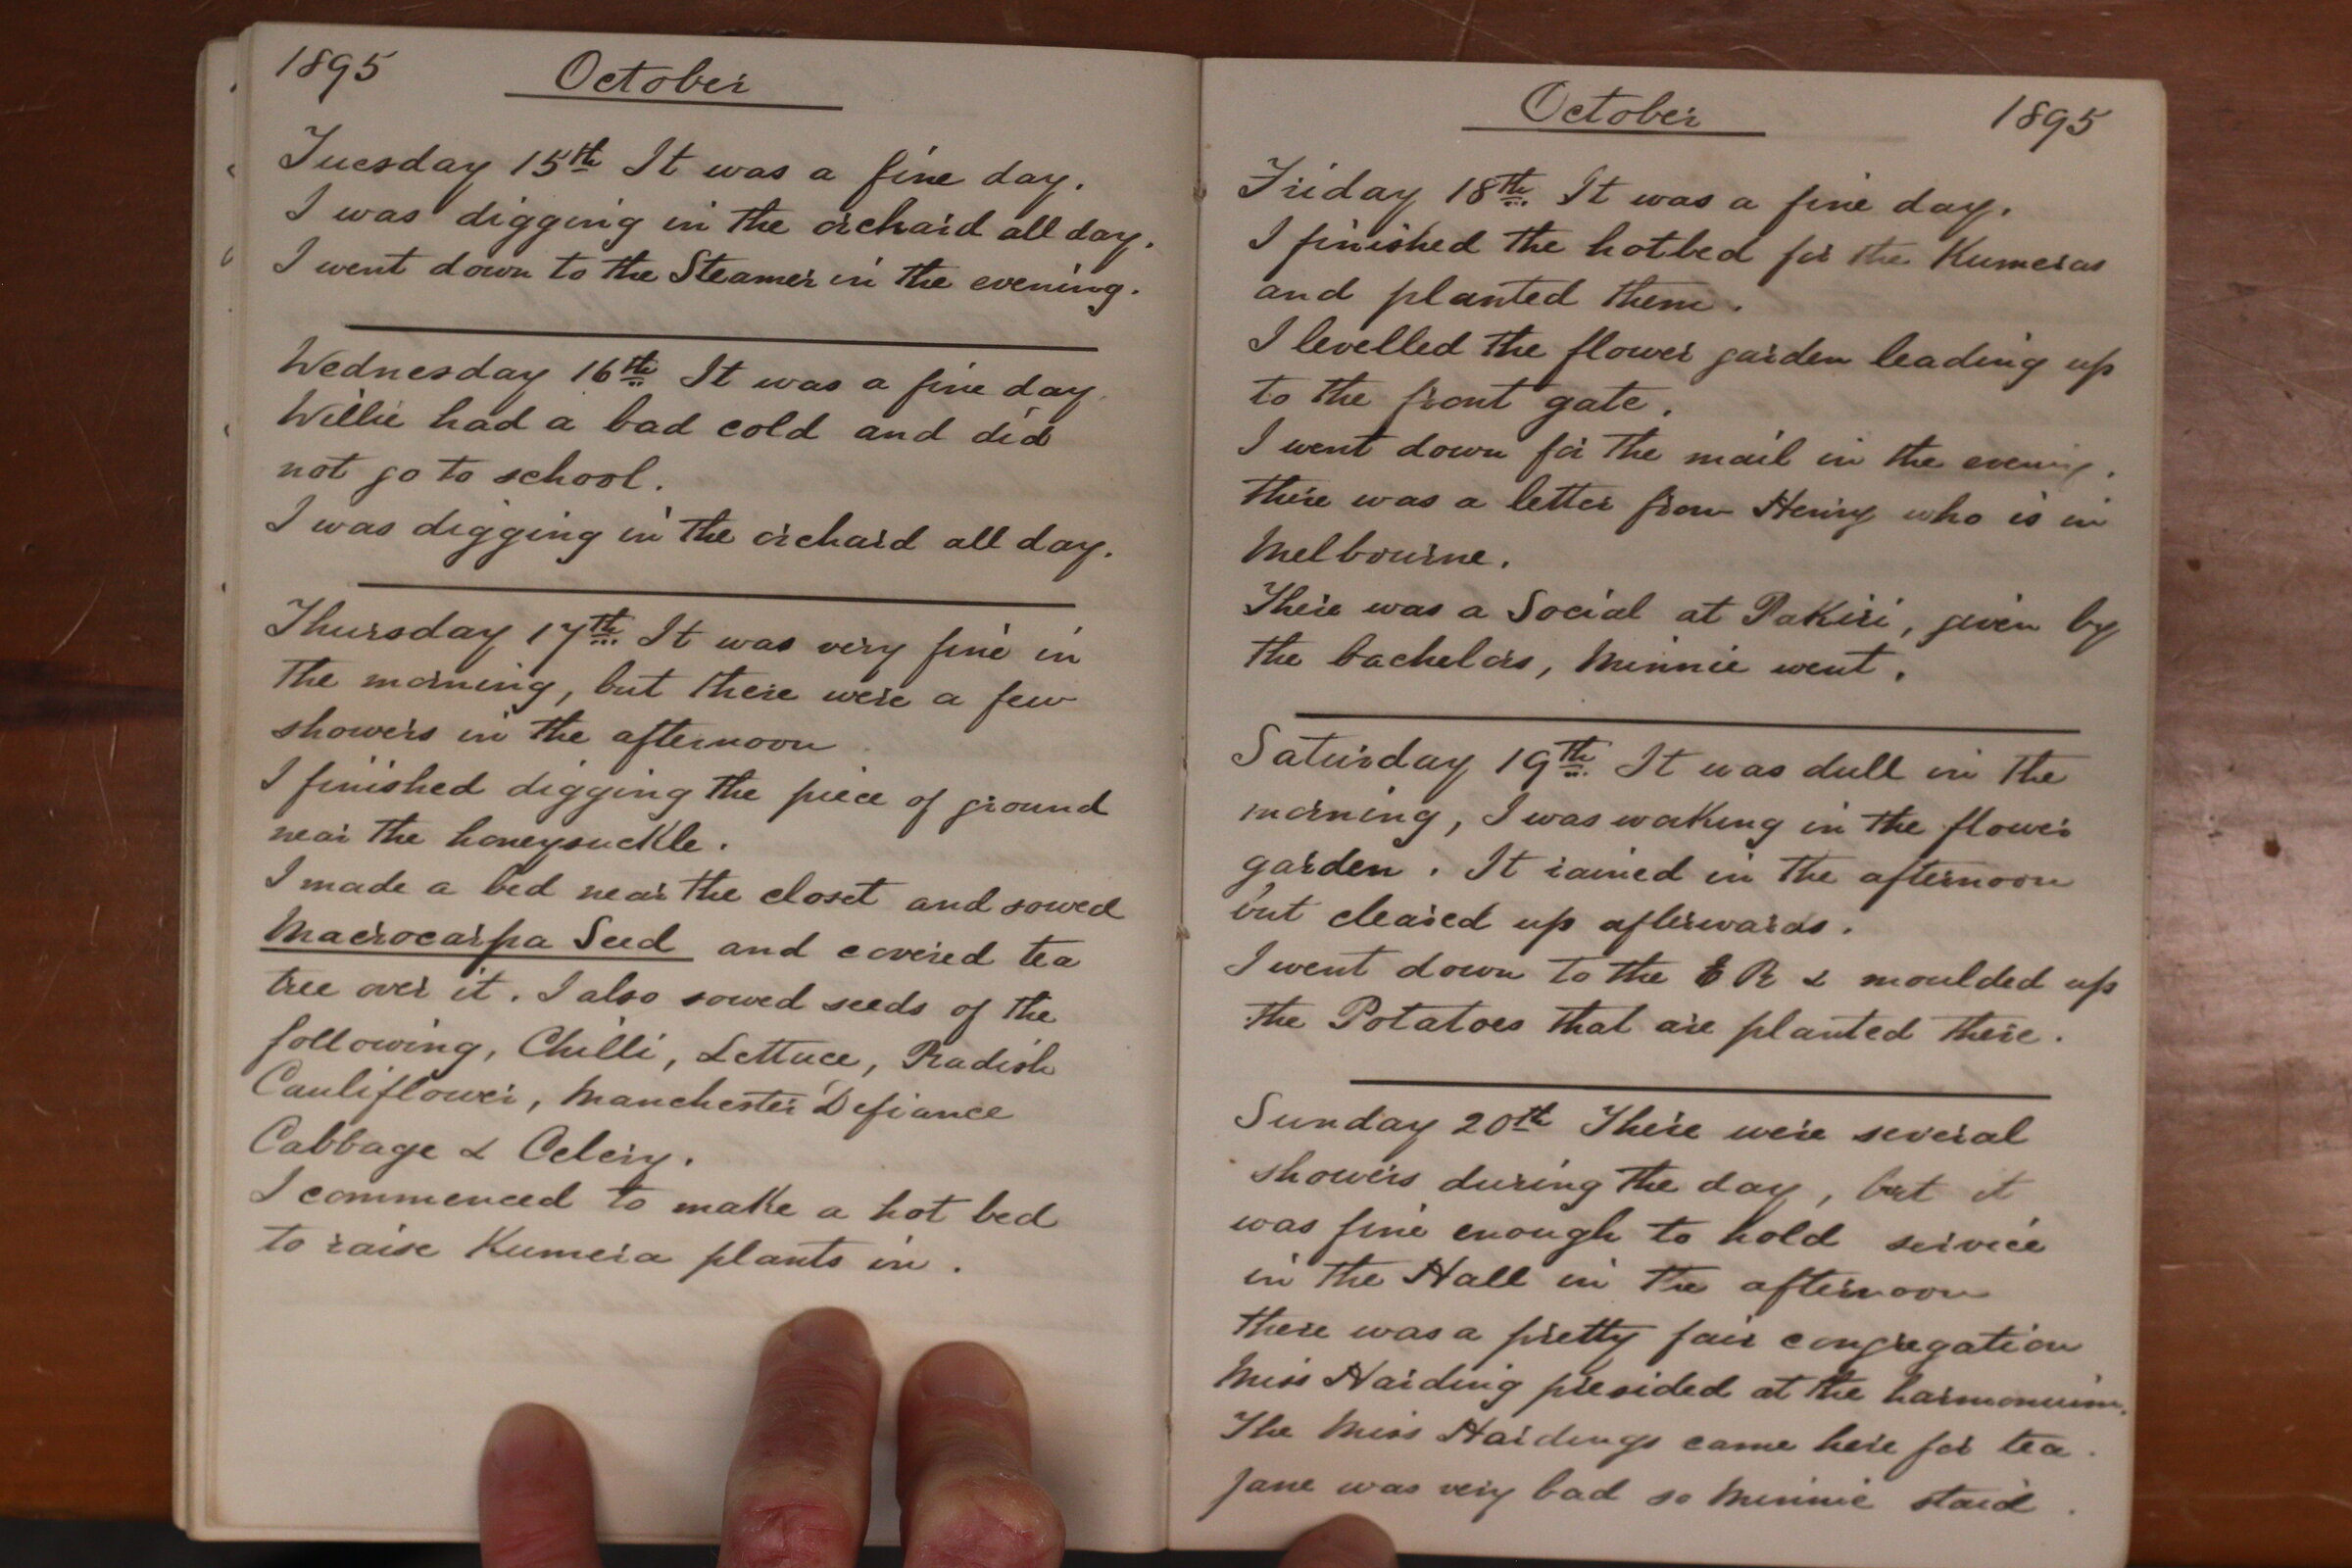 1895 October
Tuesday 15th It was a fine day.
I was digging in the orchard all day.
I went down to the Steamer in the evening.
Wednesday 16th It was a fine day.
Willie had a bad cold and did
not go to school.
I was digging in the orchard all day.
Thursday 17th It was very fine in
the morning, but there were a few
showers in the afternoon
I finished digging the piece of ground
near the honeysuckle.
I made a bed near the closet and sowed
Macrocarpa Seed and covered tea
tree over it. I also sowed seeds of the
following, Chilli, Lettuce, Radish
Cauliflower, Manchester Defiance
Cabbage & Celery.
I commenced to make a hot bed
to raise Kumera plants in.
October 1895
Friday 18th It was a fine day.
I finished the hotbed for the Kumeras
and planted them.
I levelled the flower garden leading up
to the front gate.
I went down for the mail in the evening.
there was a letter from Henry who is in
Melbourne.
There was a Social at Pakiri, given by
the bachelors, Minnie went.
Saturday 19th It was dull in the
morning, I was working in the flower
garden. It rained in the afternoon
but cleared up afterwards.
I went down to the E R & moulded up
the Potatoes that are planted there.
Sunday 20th There were several
showers during the day, but it
was fine enough to hold service
in the Hall in the afternoon
there was a pretty fair congregation
Miss Harding presided at the harmonium.
The Miss Hardings came here for tea.
Jane was very bad so Minnie staid.